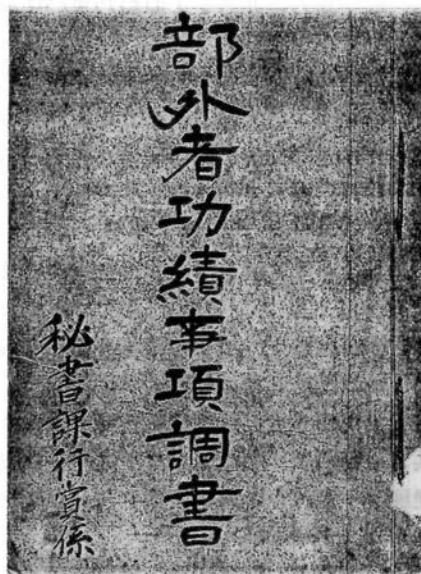 部外者功績事項調書
秘書課行賞係